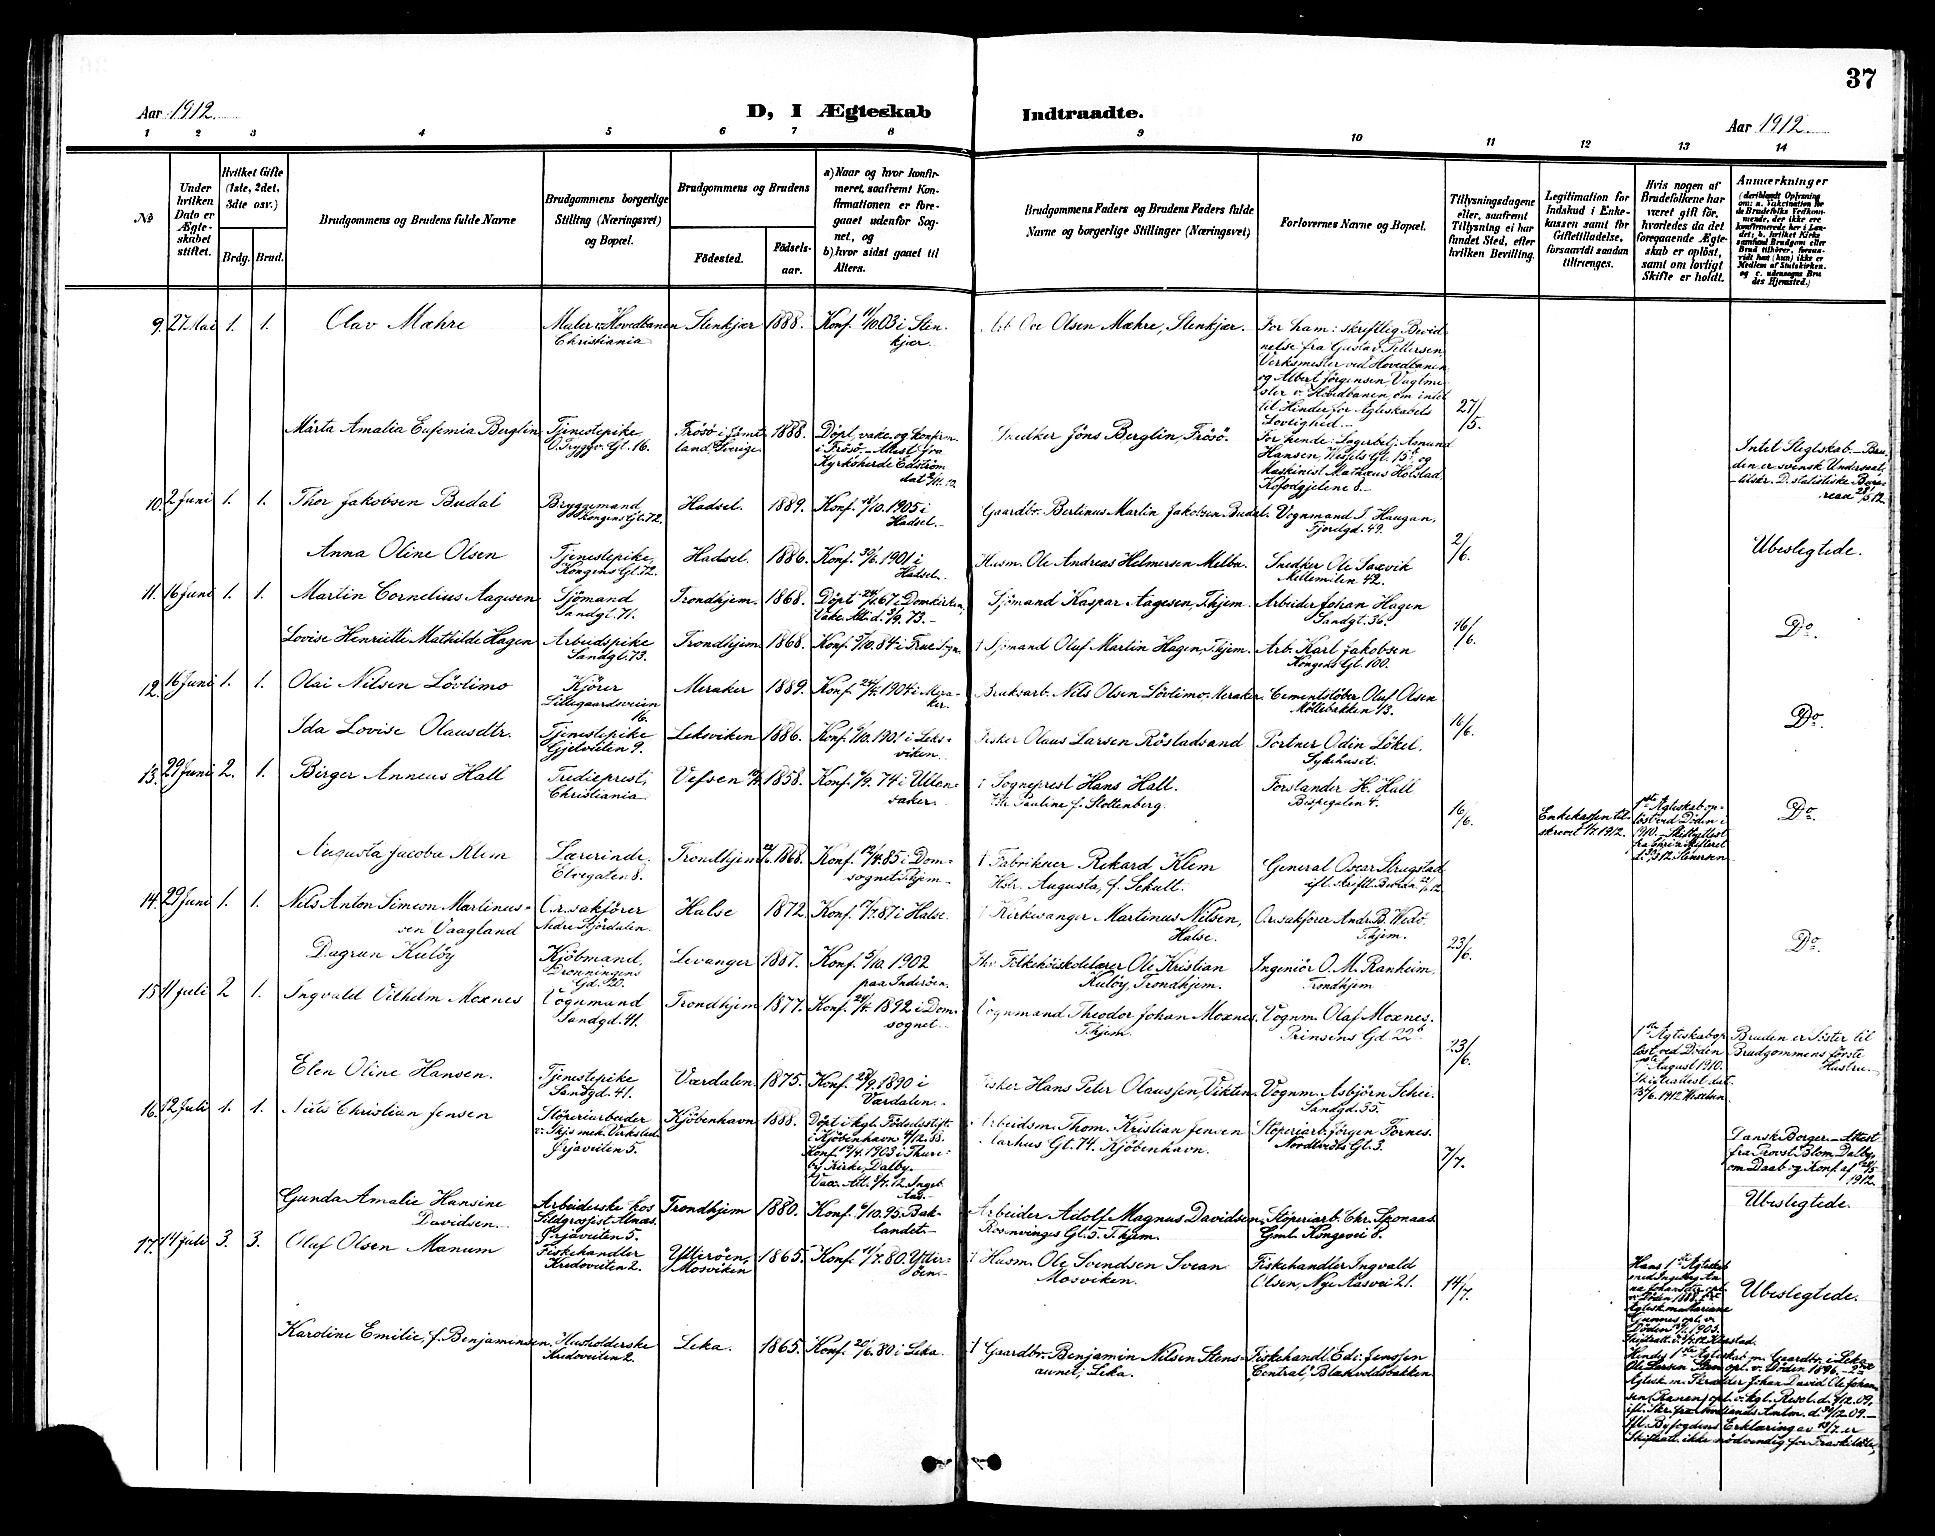 37
Aar 1912.
D, I Ægteskab Indtraadte.
Aar 1912.
1 2 3 4 5 6 7 8 9 10 11 12 13 14
No
Under hvilken Dato er Ægteskabet stiftet.
Hvilket Gifte (1ste, 2det, 3die osv.)
Brdg. Brud.
Brudgommens og Brudens fulde Navne
Brudgommens borgerlige Stilling (Næringsvei) og Bopæl.
Brudgommens og Brudens
Fødested.
Fødselsaar.
a) Naar og hvor konfirmeret, saafremt Konfirmationen er foregaaet udenfor Sognet, og
b) hvor sidst gaaet til Alters.
Brudgommens Faders og Brudens Faders fulde Navne og borgerlige Stillinger (Næringsvei)
Forlovernes Navne og Bopæl.
Tillysningsdagene eller, saafremt Tillysning ei har fundet Sted, efter hvilken Bevilling.
Legitimation for Indskud i Enkekassen samt for Giftetilladelse, forsaavidt saadan tiltrænges.
Hvis nogen af Brudefolkene har været gift før, hvorledes da det foregaaende Ægteskab er opløst, samt om lovligt Skifte er holdt.
Anmærkninger
9. 27 Mai 1. 1. Olav Mæhre
Maler v. Hovedbanen
Christiania
Stenkjær 1888. Konf. 11/10 03 i Stenkjær.
Arb. Ove Olsen Mæhre, Stenkjær.
For ham: skriftlig Bevidnelse fra Gustav Pettersen, Verksmester ved Hovedbanen og Albert Jørgensen, Vagtmester v. Hovedbanen, om intet til Hinder for Ægteskabets Lovlighed.
27/5.
Märta Amalia Eufemia Berglin
Tjenestepike,
O. Tryggv. Gt. 16.
Frösö i Jämtland, Sverige 1888.
Döpt, vakc. og konfirm. i Frösö. Attest fra Kyrkoherde Edström
Snedker Jöns Berglin, Frösö.
For hende: Ingerbetj. Asmund Hansen, Wesels Gt. 15 b og Maskinist Matheus Holstad, Kofodgjelene 8.
Intet Slegtskab. Bruden er svensk Undersaat. tilskr. D. statistiske Bureau 28/5 12.
10. 2 Juni 1. 1. Thor Jakobsen Budal
Bryggemand
Kongens Gt. 72.
Hadsel. 1889. Konf. 18/10 1905 i Hadsel.
Gaardbr. Bertinus Martin Jakobsen Budal.
Vognmand J. Haugan, Fjordgd. 49.
2/6.
Anna Oline Olsen
Tjenestepike,
Kongens Gt. 72.
Hadsel. 1886. Konf. 30/6 1901 i Hadsel.
Husm. Ole Andreas Helmersen Melbu.
Snedker Ole Saxvik
Mellemilen 42.
Ubeslegtede.
11. 16 Juni 1. 1. Martin Cornelius Aagesen
Sjömand
Sandgt. 71.
Trondhjem. 1868. Döpt 67 i Domkirken,
Sjömand Kaspar Aagesen, Thjem.
Arbeider Johan Hagen
Sandgt. 36.
16/6.
Lovise Henriette Mathilde Hagen
Arbeidspike
Sandgt. 73.
Trondhjem. 1868. Konf. 5/10 84 i Frue Sogn.
† Sjömand Oluf Martin Hagen, Thjem.
Arb. Karl Jakobsen
Kongens Gt. 100.
Do.
12. 16 Juni 1. 1. Olai Nilsen Lövlimo
Kjörer
Lillegaardsveien 16.
Meraker 1889. Konf. 1904 i Meraker.
Bruksarb. Nils Olsen Lövlimo, Meraker.
Cementstöber Oluf Olsen
Möllebakken 13.
16/6.
Ida Lovise Olausdtr.
Tjenestepike
Gjelveiten 9.
Leksviken 1886. Konf. 6/10 1901 i Leksviken.
Fisker Olaus Larsen Röstadsand
Portner Odin Lökel.
Sykehuset.
Do.
13. 29 Juni 2. 1. Birger Anneus Hall
Trediepresti,
Christiania
Vefsen 1858. Konf. 74 i Ullensaker.
† Sogneprest Hans Hall.
Htr. Pauline f. Stoltenberg.
Forslander H. Hall
Bispegaten 4.
16/6.
Enkekassen tilskrevet 1/7 1912.
1ste Ægteskab oplöst ved Döden i 1910.
Do.
Augusta Jacoba Klem
Lærerinde.
Elvegaten 8.
Trondhjem 1868. Konf. 12/4 85 i Domsognet, Thjem.
† Fabrikner Rikard Klem
Hstr. Augusta, f. Schult.
General Oscar Strugstad
14. 29 Juni 1. 1. Nils Anton Simeon Martinussen Vaagland
O.r. sakförer
Nedre Stjördalen.
Halse 1872. Konf. 87 i Halse.
† Kirkesanger Martinus Nilsen, Halse.
O.r. sakförer Andr. B. Wedö
Thjem.
23/6.
Dagrun Kulöy
Kjöbmand,
Dronningens Gd. 20.
Levanger 1887. Konf. 5/10 1902 paa Inderöen.
Fhv. Folkehöiskolelærer Ole Kristian Kulöy, Trondhjem.
Ingeniör O. M. Ranheim,
Trondhjem
Do.
15. 11 Juli 2 1. Ingvald Vilhelm Moxnes
Vognmand
Sandgd. 41.
Trondhjem 1877. Konf. 1892 i Domsognet.
Vognmand Theodor Johan Moxnes.
Thjem.
Vognm. Olaf Moxnes.
Prinsens Gd 22 b.
23/6.
1ste Ægteskab oplöst ved Döden August 1910.
Bruden er Söster til Brudgommens förste Hustru.
Elen Oline Hansen.
Tjenestepike
Sandgd. 41.
Værdalen 1875. Konf. 1890 i Værdalen.
Fisker Hans Peter Olaussen, Vikten.
Vognm. Asbjörn Schei.
Sandgd. 35.
16. 12 Juli 1. 1. Niels Christian Jensen
Stöperiarbeider
v. Thjs mek. Verksted.
Örjaveiten 5.
Kjöbenhavn 1888. Döpt i Kgl. Födselsstift. i Kjöbenhavn 9/12 88. Konf. 19/4 1903 i Thureby Kirke, Dalby.
Arbeidsm. Thom. Kristian Jensen
Aarhus Gt. 74. Kjöbenhavn.
Stöperiarb. Jörgen Tornes.
Nordtvedts Gt. 3.
7/7.
Dansk Borger. Attest fra Provst Blom, Dalby, om Daab og Konf. af 1912.
Gunda Amalie Hansine Davidsen.
Arbeiderske hos Sildgrossist Alnæs.
Örjaveiten 5.
Trondhjem 1880. Konf. 6/10 95. Baklandet.
Arbeider Adolf Magnus Davidsen,
Rosenvinges Gt. 5. Thjem.
Stöperiarb. Chr. Sponaas.
Gml. Kongevei 8.
Ubeslegtede.
17. 14 Juli 3. 3. Oluf Olsen Manum
Fiskehandler
Kredoveiten 2.
Ytteröen, Mosviken 1865. Konf. 11/7 80. Ytteröen.
† Husm. Ole Svendsen Svean
Mosviken.
Fiskehandler Ingvald Olsen, Nye Aasvei 21.
14/7.
Hans 1ste Ægteskab med Ingeborg Anna Johansdtr. opl. v. Döden 1888. 2det Ægtesk. m. Mariane Gunnes opl. v. Döden 1903.
Ubeslegtede.
Karoline Emilie, f. Benjaminsen.
Husholderske
Kredoveiten 2.
Leka. 1865. Konf. 20/6 80 i Leka.
† Gaardbr. Benjamin Nilsen Stensaunet, Leka.
Fiskehandl. Edv. Jenssen
"Central", Blækvoldsbakken
Hendes 1ste Ægteskab m. Gaardbr. i Leka Ole Larsen Sten opl. v. Döden 1896. 2det Ægtesk. m. Skrædder Johan David Ole Johansen (Ranan) opl. v. kgl. Resol. d. 9/12 09, ifl. Skr. fra Nordlands Amtm. d. 30/12 09.
Ifl. Byfogdens Erklæring av 13/7. er Skifteatt. ikke nödvendig for Fraskildte.